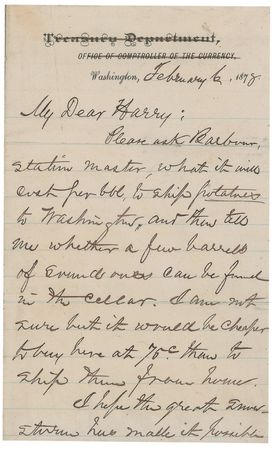 Treasury Department,
OFFICE OF COMPTROLLER OF THE CURRENCY,
Washington, February 6, 1878
My Dear Harry:
Please ask Barbour,
station master, what it will
cost per bbl, to ship potatoes
to Washington, and then tell
me whether a few barrels
of sound ones can be found
in the cellar. I am not
sure but it would be cheaper
to buy here at 75c than to
ship them from home.
I hope the great snow
storm has made it possible